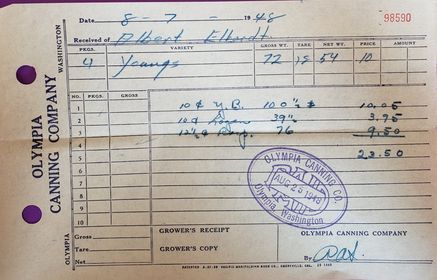 Date 8 - 7 - 1948
98590
Received of Albert
PKGS. VARIETY GROSS WT. TARE NET WT. PRICE AMOUNT
4 Youngs 72 18 54 10
NO. PKGS. GROSS
1 10¢ Y.B. 100½ # 10.05
2 10¢ 39½ 3.95
3 12½¢ 76 9.50
4 23.50
5
6
7
8
9
10
OLYMPIA CANNING CO.
AUG 25 1948
Olympia, Washington
Gross
Tare
Net
GROWER'S RECEIPT
GROWER'S COPY
OLYMPIA CANNING COMPANY
By
OLYMPIA
CANNING COMPANY
WASHINGTON
OLYMPIA